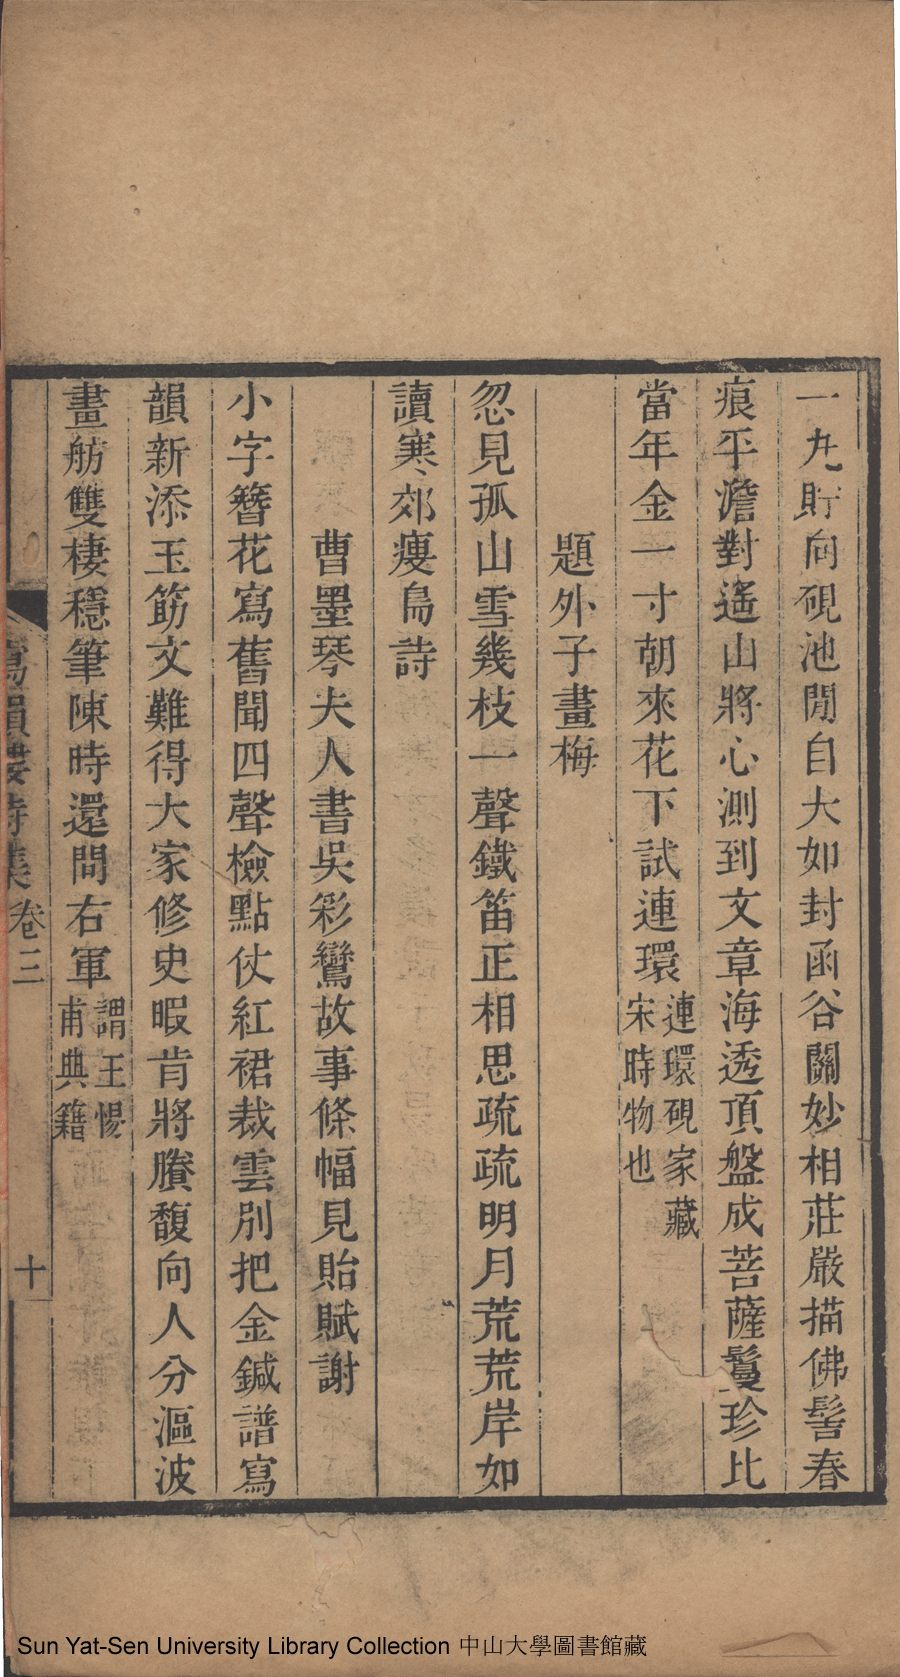 一丸貯向硯池閒自大如封函谷關妙相莊嚴描佛髻春
痕平澹對遙山將心測到文章海透頂盤成菩薩鬘珍比
當年金一寸朝來花下試連環連環硯家藏
宋時物也
題外子畫梅
忽見孤山雪幾枝一聲鐵笛正相思疏疏明月荒荒岸如
讀寒郊瘦島詩
曹墨琴夫人書吳彩鸞故事條幅見貽賦謝
小字簪花寫舊聞四聲檢點仗紅裙裁雲別把金鍼譜寫
韻新添玉筯文難得大家修史暇肯將賸馥向人分漚波
畫舫雙棲穩筆陳時還問右軍謂王惕
甫典籍
寫韻樓詩集 卷三
十
Sun Yat-Sen University Library Collection 中山大學圖書館藏